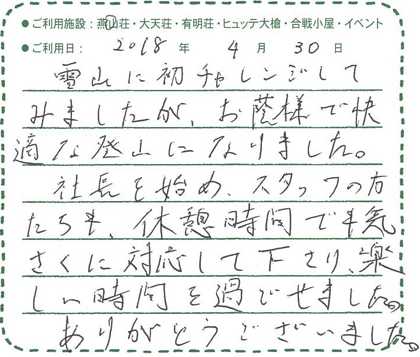 ●ご利用施設：燕山荘・大天荘・有明荘・ヒュッテ大槍・合戦小屋・イベント
●ご利用日：2018年4月30日
雪山に初チャレンジして
みましたが、お蔭様で快
適な登山になりました。
社長を始め、スタッフの方
たちも、休憩時間でも気
さくに対応して下さり、楽
しい時間を過ごせました。
ありがとうございました。